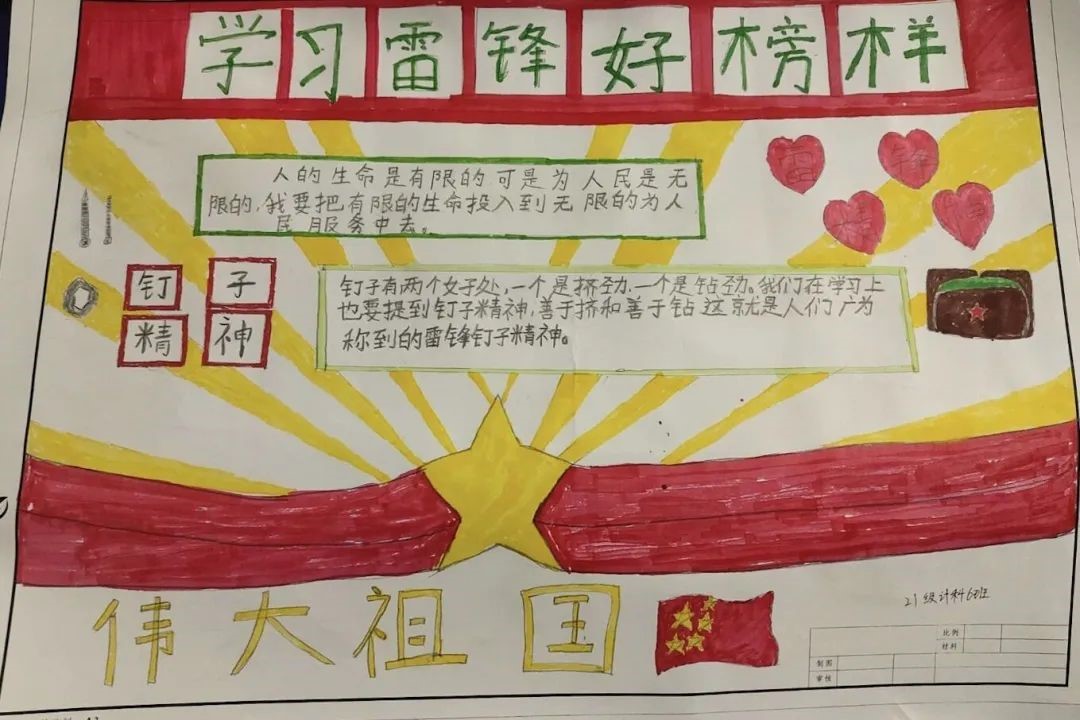 学习雷锋好榜样
人的生命是有限的,可是为人民是无
限的,我要把有限的生命投入到无限的为人
民服务中去。
雷 锋
精 神
钉子
精神
钉子有两个女子处,一个是挤劲,一个是钻劲。我们在学习上
也要提到钉子精神,善于挤和善于钻,这就是人们广为
称到的雷锋钉子精神。
伟大祖国
21级计科6班
比例
材料
制图
审核